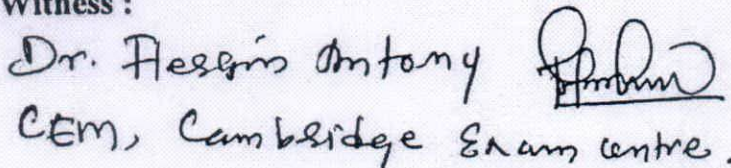 Witness :
Dr. Flessin Antony
CEM, Cambridge Exam centre.